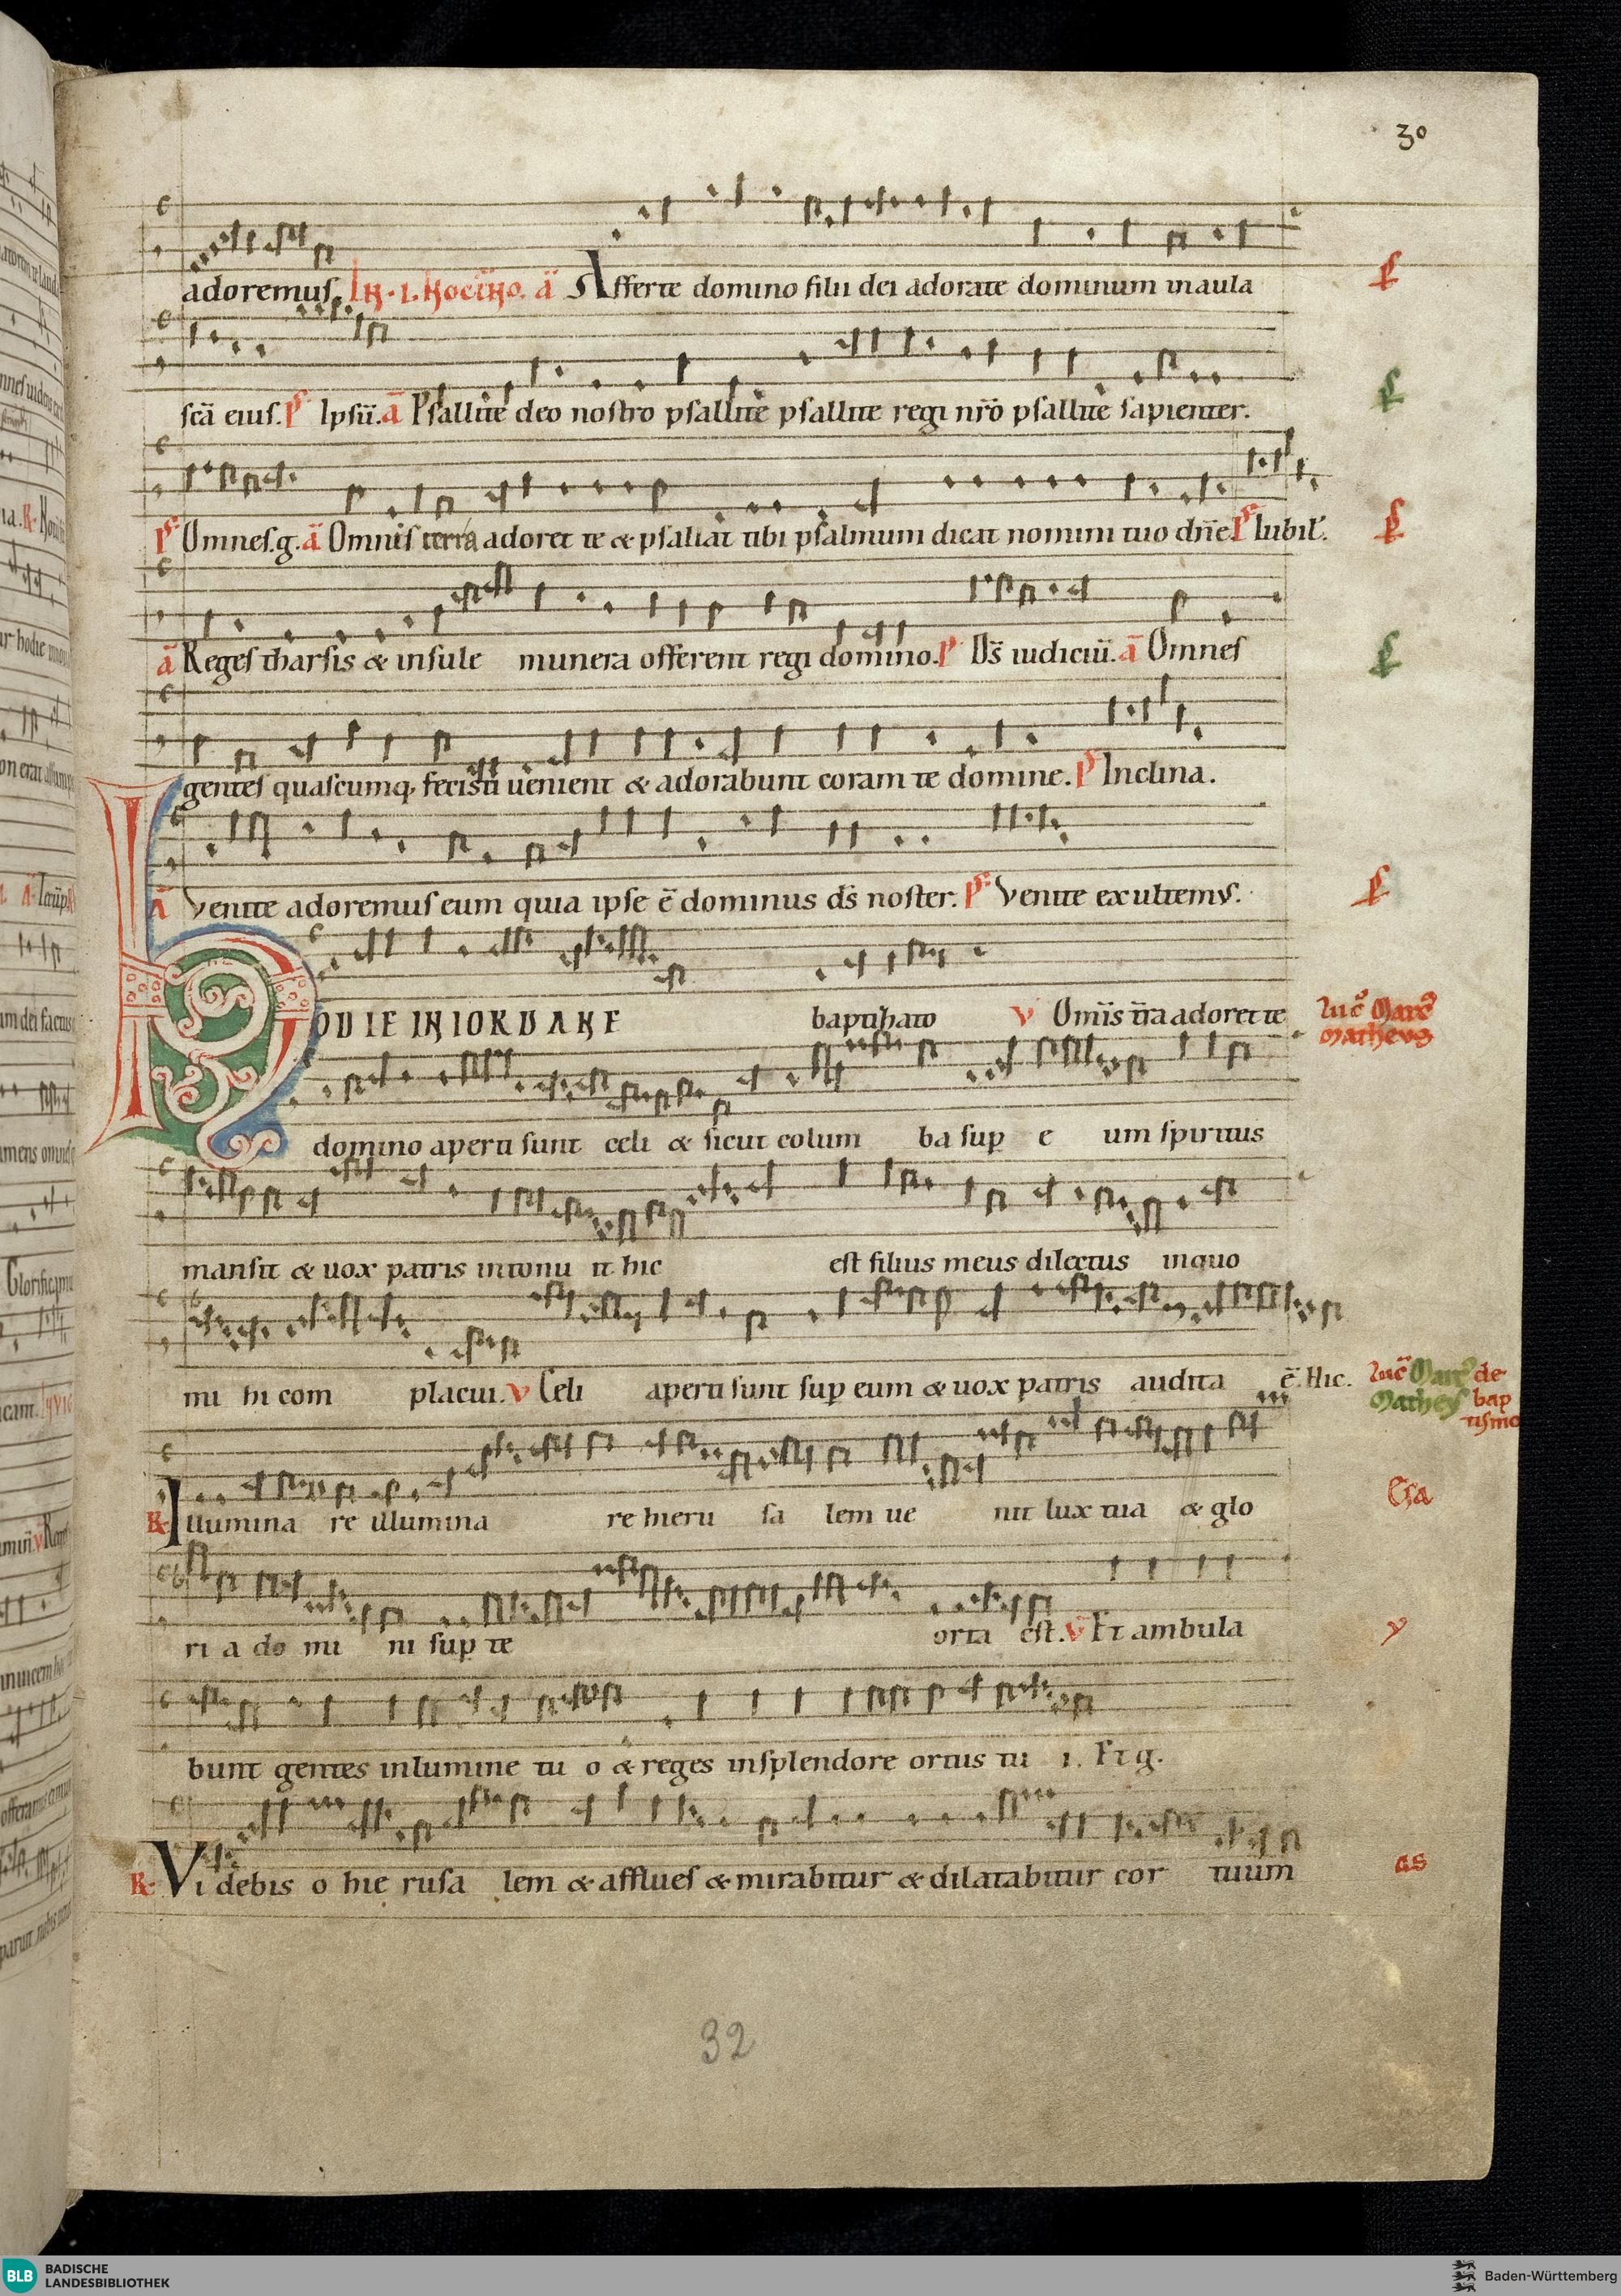 30
adoremus. IN .I. NOCTRNO. a Afferte domino filii dei adorate dominum in aula
scā eius. ps Ipsū. a Psallite deo nostro psallite psallite regi nr̄o psallite sapienter.
ps Omnes.g. a Omnis terra adoret te & psallat tibi psalmum dicat nomini tuo dn̄e. ps Iubil.
a Reges tharsis & insule munera offerent regi domino. ps Ds̄ iudiciū. a Omnes
gentes quascumq; fecisti uenient & adorabunt coram te domine. ps Inclina.
a Venite adoremus eum quia ipse ē dominus ds̄ noster. ps Venite exultemus.
HODIE IN IORDANE baptizato V Omīs t̄ra adoret te
Luc Marc
Matheus
domino aperti sunt celi & sicut colum ba sup e um spiritus
mansit & uox patris intonu it hic est filius meus dilectus in quo
mi hi com placui. V Celi aperti sunt sup eum & uox patris audita ē. Hic.
Luc Marc de
Matheus bap
tismo
R Illumina re illumina re hieru sa lem ue nit lux tua & glo
Esa
ri a do mi ni sup te orta est. V Et ambula
y
bunt gentes in lumine tu o & reges in splendore ortus tu i. Et g.
R Vi debis o hie rusa lem & afflues & mirabitur & dilatabitur cor tuum
as
32
BLB BADISCHE LANDESBIBLIOTHEK
Baden-Württemberg